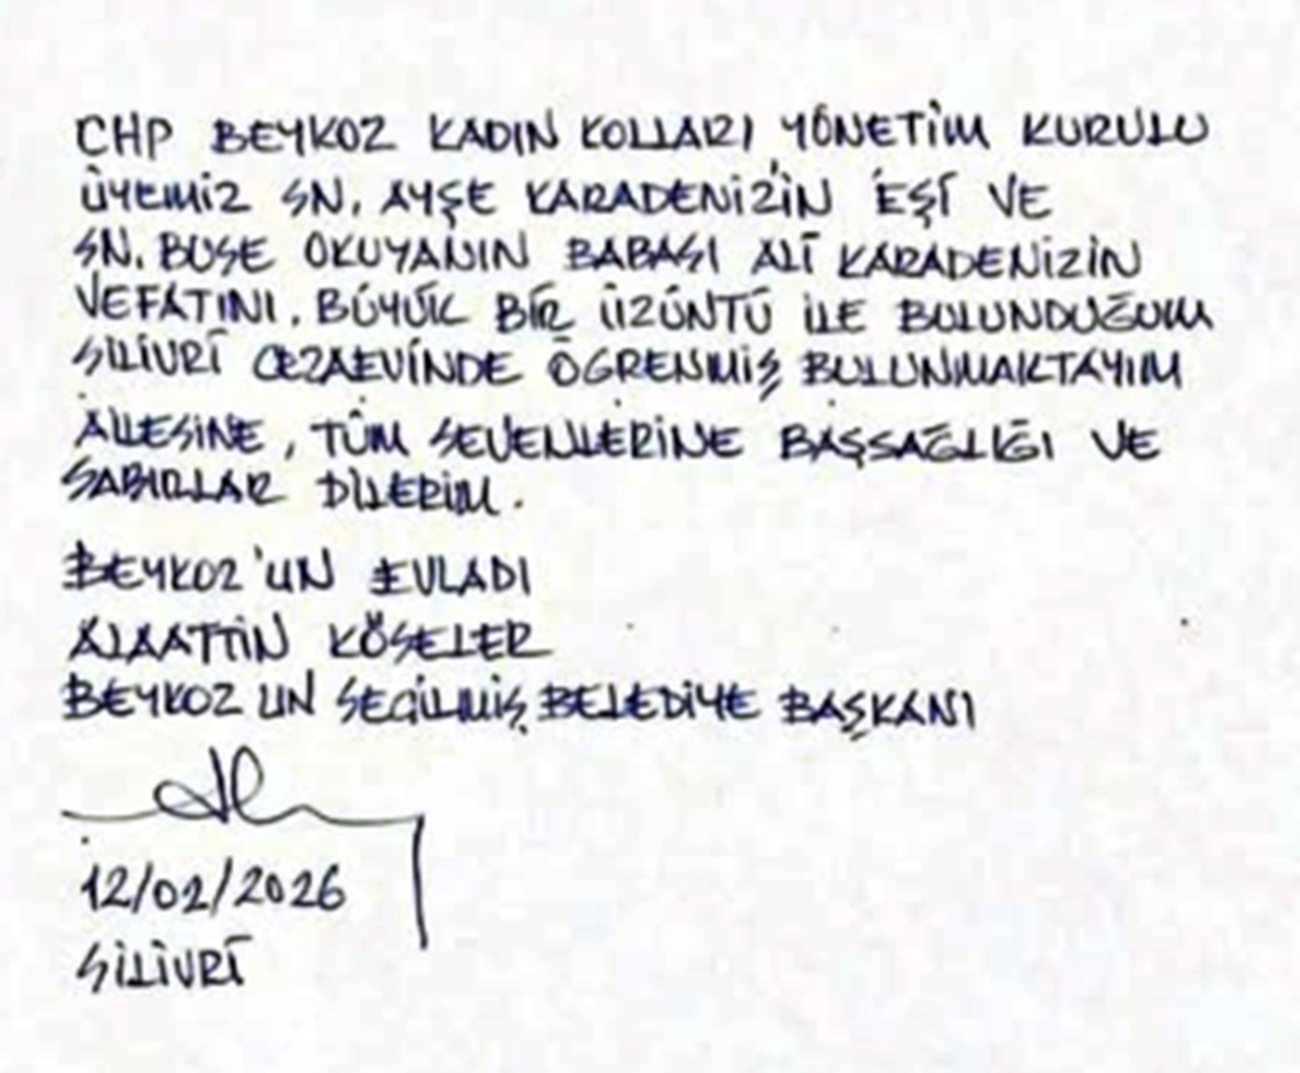 CHP BEYKOZ KADIN KOLLARI YÖNETİM KURULU
ÜYEMİZ SN. AYŞE KARADENİZ'İN EŞİ VE
SN. BUSE OKUYANIN BABASI ALİ KARADENİZİN
VEFATINI. BÜYÜK BİR ÜZÜNTÜ İLE BULUNDUĞUM
SİLİVRİ CEZAEVİNDE ÖĞRENMİŞ BULUNMAKTAYIM
AİLESİNE, TÜM SEVENLERİNE BAŞSAĞLIĞI VE
SABIRLAR DİLERİM.
BEYKOZ'UN EVLADI
ALAATTİN KÖSELER
BEYKOZ UN SEÇİLMİŞ BELEDİYE BAŞKANI
12/02/2026
SİLİVRİ